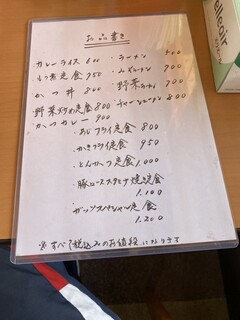 お品書き
カレーライス 800
もつ煮定食 950
かつ丼 800
野菜炒め定食 800
かつカレー 900
・ラーメン 500
・みそラーメン 700
・野菜ラーメン 700
・チャーシューメン 800
・あじフライ定食 800
・かきフライ定食 950
・とんかつ定食 1,000
・豚ローススタミナ焼き定食
1,100
・ガッツスペシャル定食
1,200
※すべて税込みのお値段になります
elleair